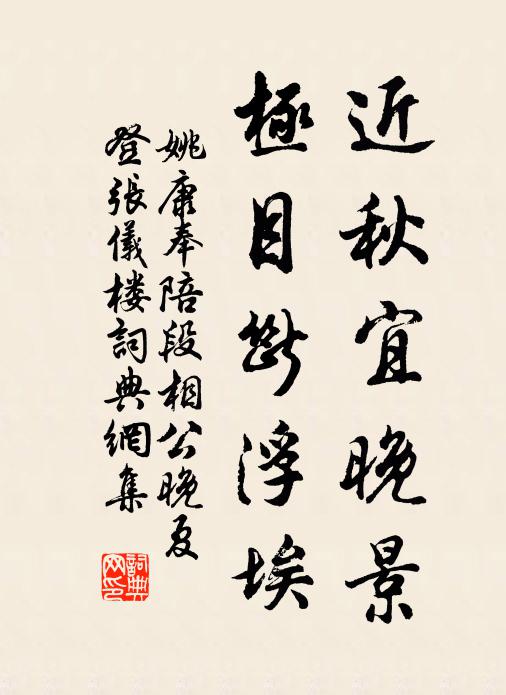 近秋宜晚景
極目斷浮埃
姚康奉陪段相公晚夏
登張儀楼詞典網集
詞典
网印